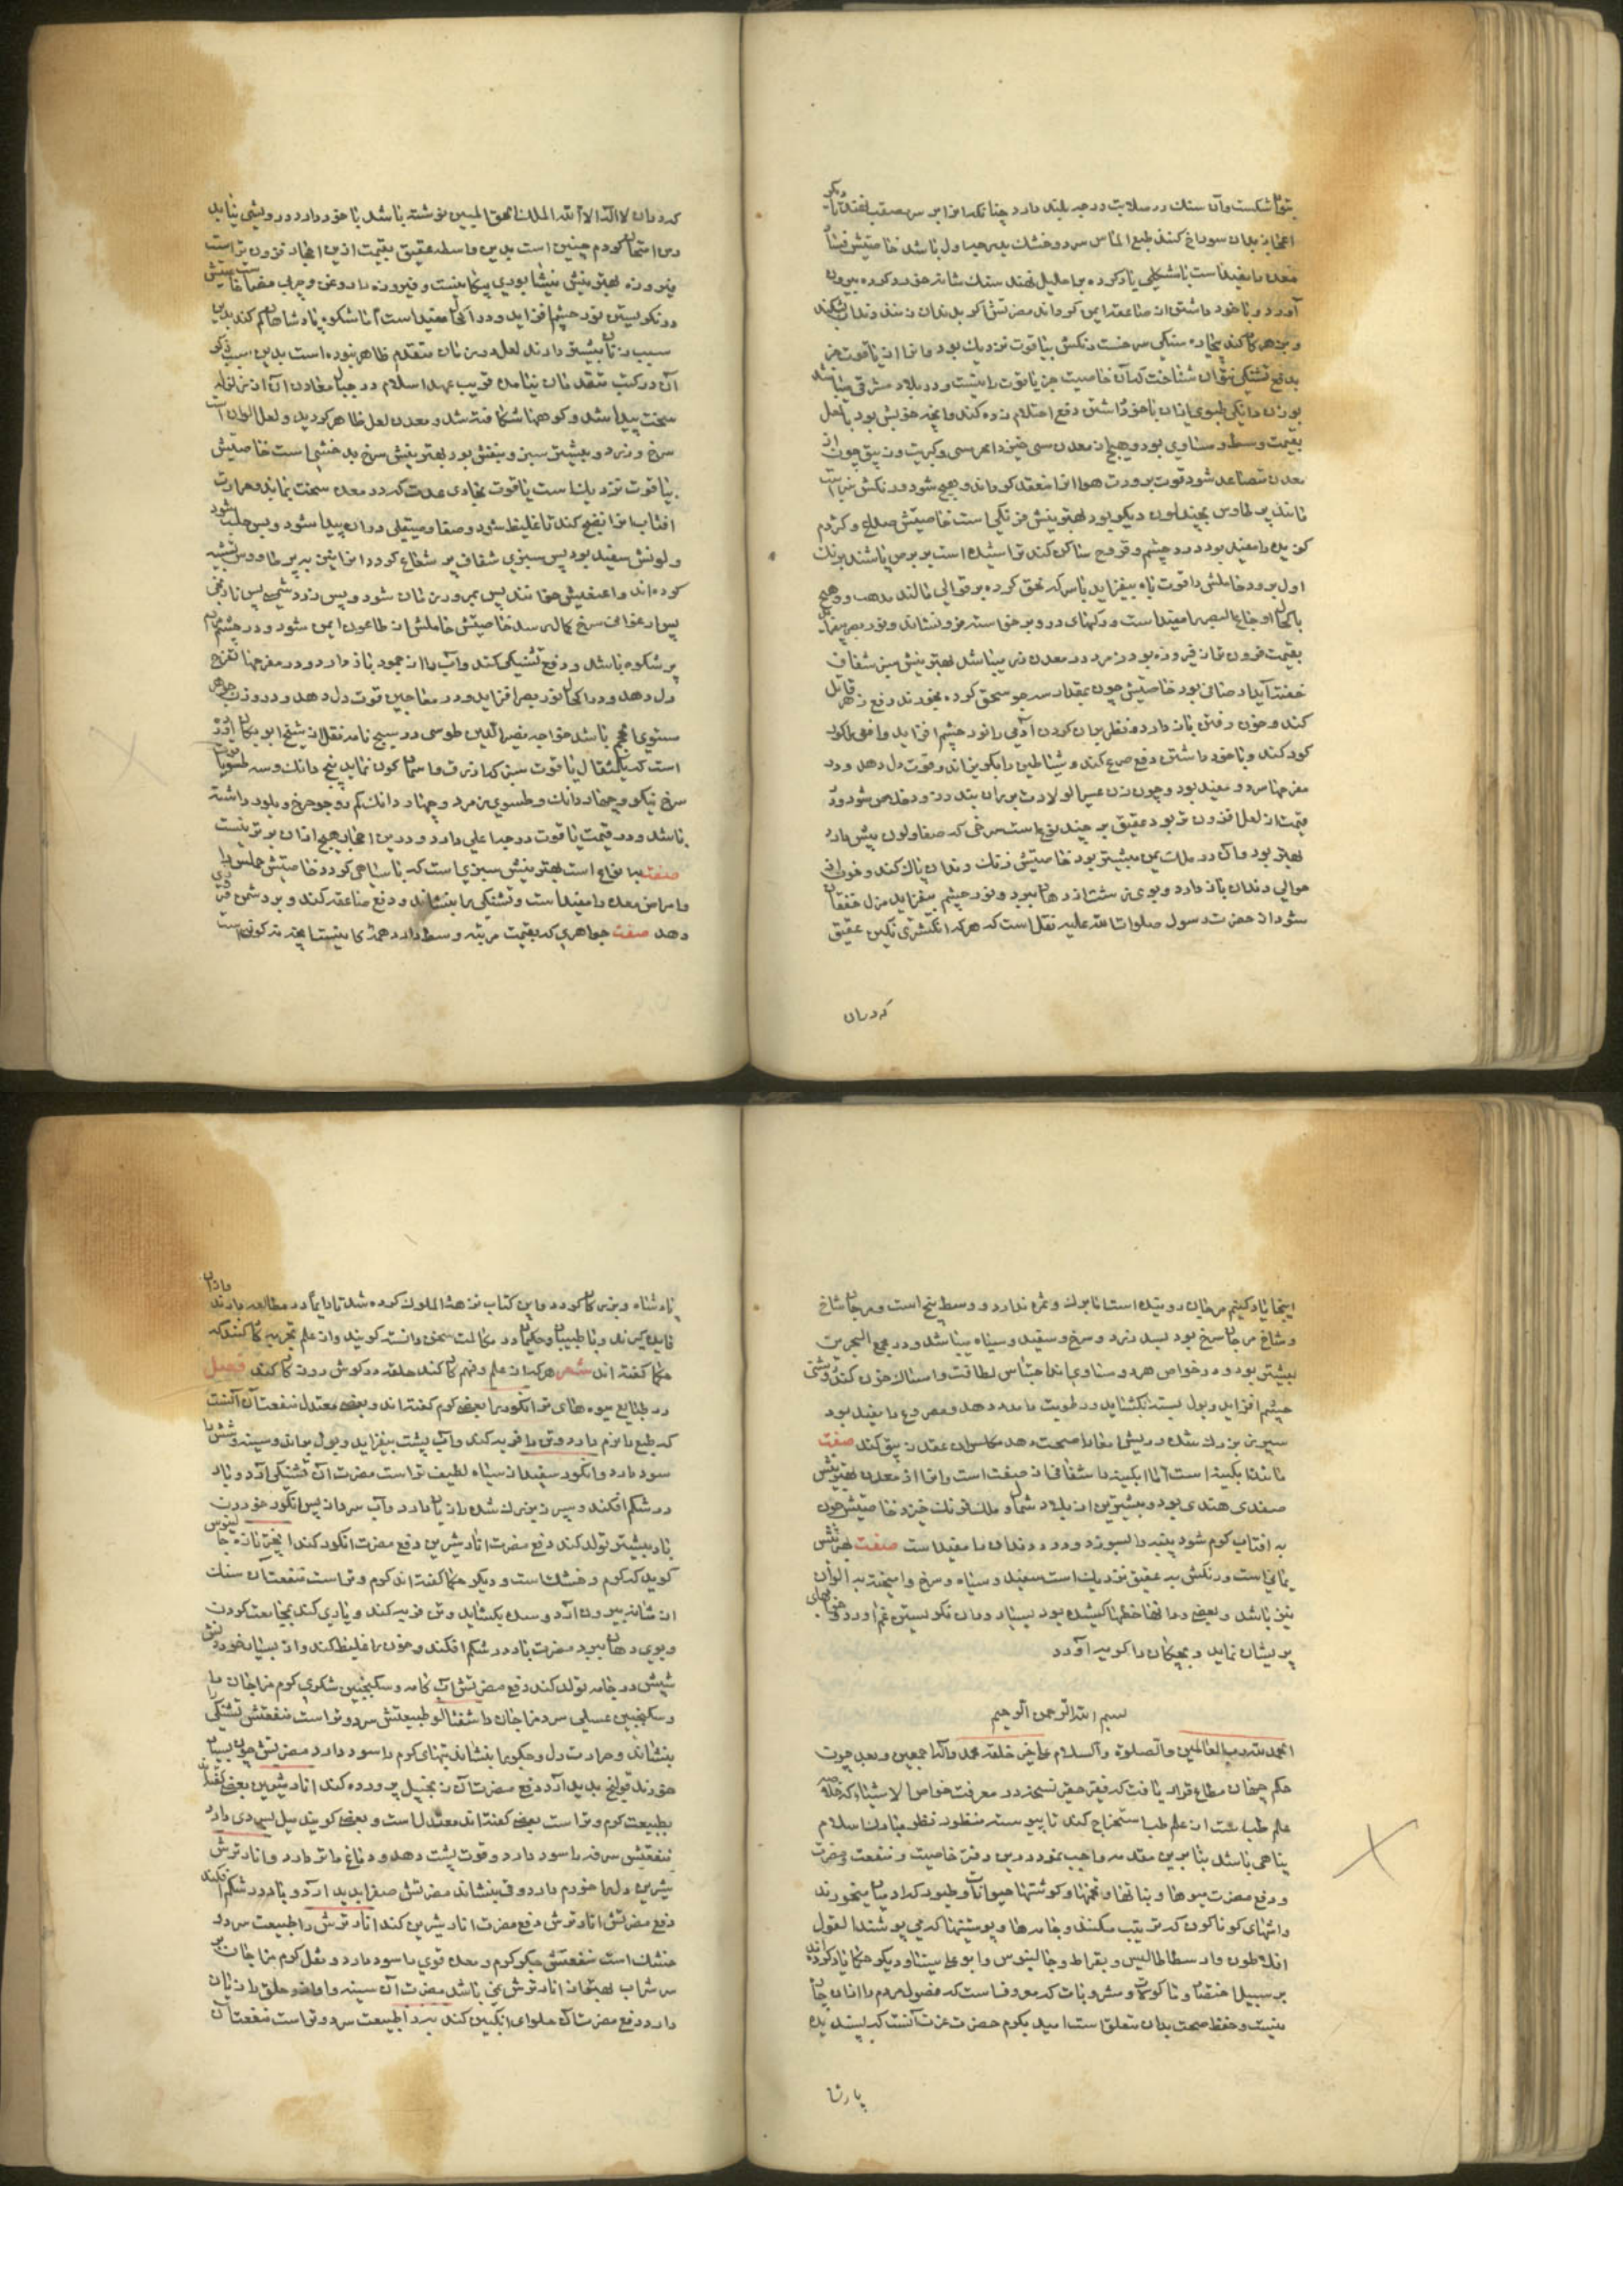 بتوان شکست و آن سنک در صلابت درجه بلند دارد چنانکه او را بر سر مصقب نهند و دیکر
احجار بدان سوراخ کنند طبع الماس سرد و خشک بدرجه اول باشد خاصیتش
معده را مفید است
آورد و با خود داشتن از صاعقه ایمن کرداند مضرتش اکر بدندان زنند دندان بشکند
و زهر کار کند بیجاده سنکی سرخست رنکش بیاقوت نزدیک بود و او را از یاقوت جز
بدفع تشنکی نتوان شناخت که آن خاصیت جز یاقوت را نیست و در بلاد مشرق میباشد
بوزن دانکی و طسوی ازان با خود داشتن دفع احتلام زده کند و انچه خوبش بود با لعل
بقیمت وسط و مساوی بود دهنج از معدن مس خیزد ابخره مس و کبریت و زیبق چون از
معدن متصاعد شود قوت برودت هوا او را منعقد کرداند دهنج شود و رنکش سبز است
مانند پر طاوس بچند لون دیکر بود بهترینش فرنکی است خاصیتش صداع و کژدم
کزیده را مفید بود درد چشم و قروح ساکن کند تراشیده است بر برص باشند برنک
اول برود حاملش را قوت باه بیفزاید با سرکه سحق کرده بر قوابی مالند بدهد
باکحال اوجاع البصر را مفید است
بقیمت فزون تر از فیروزه بود زمرد در معدن زر میباشد بهترینش سبز شفاف
خفته آبدار صافی بود خاصیتش چون بمقدار سه جو سحق کرده بخورند دفع زهر قاتل
کند و خون رفتن باز دارد و نظر بدان کردن آدمی را نور چشم افزاید و افعی را کور
کور کند و با خود داشتن دفع صرع کند و شیاطین را بکریزاند و قوت دل دهد و در
مفرحها سرد و مفید بود و چون زن عسر الولادت بر ران بندد زود خلاص شود و در
قیمت از لعل افزون تر بود عقیق بر چند نوع است سرخی که صفا و لون بیش دارد
بهتر بود و آن در ملک یمن بیشتر بود خاصیتش زنک دندان پاک کند و خون از
حوالی دندان باز دارد و بوی زشت از دهان ببرد و نور چشم بیفزاید مزیل خفقان
شود از حضرت رسول صلوات الله علیه نقل است که هر که انکشتری نکین عقیق
که دران
که دران لا اله الا الله الملک الحق المبین نوشته باشد با خود دارد درویشی نیابد
و من امتحان کردم چنین است بدین واسطه عقیق بقیمت ازین احجار فزون تر است
فیروزه بهترینش نیشابوری پیکانیست و فیروزه را روغن و چربی مضر است خاصیتش
در نکریستن نور چشم افزاید و در اکحال مفید است اما شکوه پادشاهان کم کند بدین
سبب زنان بیشتر دارند لعل در زمان متقدم ظاهر نبوده است بدین سبب ذکر
آن در کتب متقدمان نیامده قریب عهد اسلام در جبال معادن آن از زلزله
سخت پیدا شد و کوهها شکافته شد و معدن لعل ظاهر کردید و لعل الوان است
سرخ و زرد و بیشتر سبز و بنفش بود بهترینش سرخ بدخشی است خاصیتش
بیاقوت نزدیک است یاقوت بخاری غلیظ که در معدن سخت بماند و حرارت
افتاب او را نضج کند تا غلیظ شود و صفا و صیقلی دران پیدا شود و پس صلب شود
و لونش سفید بود پس سبزی شفاف پر شعاع کردد او را نیز به پر طاووس تشبیه
کرده اند و اصفهانیش خوانند پس بمرور زمان شود و پس زرد شمعی پس نارنجی
پس ارغوانی سرخ کمال رسد خاصیتش حاملش از طاعون ایمن شود و در چشم مردم
پر شکوه باشد و دفع تشنکی کند و آب را از جمود باز دارد و در مفرحها تفریح
دل دهد و در اکحال نور بصر افزاید و در معاجین قوت دل دهد و در وزن جواهر
مستوی الحجم باشد خواجه نصیر الدین طوسی در تنسخ نامه نقل از شیخ ابو ریحان آورد
است که یکمثقال یاقوت سبز کبود برنک آسمان کون نماید پنج دانک و سه طسو یاقوت
سرخ نیکو و چهار دانک و طسوی زمرد و چهار دانک کم دو جو جزع و بلور داشته
باشد و در قیمت یاقوت درجه اعلی دارد و درین احجار هیچ ازان برتر نیست
صفت انواع است بهترینش سبزی است که با سیاهی کردد خاصیتش
و امراض معده را مفید است و تشنکی را بنشاند و دفع صاعقه کند و بر دشمن فیروزی
دهد صفت جواهری که بقیمت مرتبه وسط دارد همتای نیست انچه مذکور نیست
اینجا یاد کنیم مرجان روینده است اما برک و ثمره ندارد و وسط بیخ است و مرجان شاخ
و شاخ مرجان سرخ بود بسد زرد و سرخ و سفید و سیاه میباشد و در مجمع البحرین
بیشتر بود و در خواص هر دو مساوی اند احتباس لطافت و امساک خون کند و روشنی
چشم افزاید و بول بسته بکشاید و رطوبت را مدد دهد و مصروع را مفید بود
سپرز بزرک شده و ریش امعا را صحت دهد مکاسران عقد زیبق کند صفت
مانند آبکینه است اما آبکینه را شفافی از صنعت است و او را از معدن بهترینش
صفدی هندی بود و بیشترین از بلاد شمال و ملک فرنک خیزد خاصیتش چون
به افتاب کرم شود پنبه را بسوزد و درد دندان را مفید است صفت بهترینش
یمانی است و رنکش به عقیق نزدیک است سفید و سیاه و سرخ و امیخته به الوان
نیز باشد و بعضی را بر آنها خطها کشیده بود بسیار دران نکریستن غم آورد و خوابهای
پریشان نماید و بچکان را کریه آورد
بسم الله الرحمن الرحیم
الحمد لله رب العالمین والصلوة والسلام علی خیر خلقه محمد وآله اجمعین و بعد چون
حکم جهان مطاع قرار یافت که فقیر حقیر نسخه در معرفت خواص الاشیاء که خلاصه
علم طب است از علم طب استخراج کند تا پیوسته منظور نظر پادشاه اسلام
پناهی باشد بنا برین مقدمه واجب نمود درین دفتر خاصیت و منفعت و مضرت
و دفع مضرت میوها و نباتها و تخمها و کوشتها حیوانات و طیور که ادمیان میخورند
و اشهای کوناکون که ترتیب میکنند و جامه ها و پوستینها که می پوشند القول
افلاطون و ارسطاطالیس و بقراط و جالینوس و ابو علی سینا و دیکر حکما یاد کرده اند
بر سبیل اختصار و ماکولات و مشروبات که معروفست که فضول مردم را ازان چاره
نیست و حفظ صحت بدان متعلق است امید بکرم حضرت عزت آنست که پسندیده
پادشا
پادشاه و بزرکان کردد و این کتاب نزهة الملوک کرده شد تا دایماً در مطالعه دارند و ازان
فایده کیرند و با طبیبان و حکیمان در مکالمت سخن دانسته کویند و از علم تجربه کار کنند که
حکما کفته اند شعر هر که از علم و فهم کار کند حلقه در کوش روزکار کند فصل
در طبایع میوه های تر انکور را بعضی کرم کفته اند و بعضی معتدل منفعت آن آنست
که طبع را نرم دارد و تن را فربه کند و آب پشت بیفزاید و بول براند و سینه و شش را
سود دارد و انکور سفید از سیاه لطیف تر است مضرت آن تشنکی آرد و باد
در شکم افکند و سپرز بزرک شده را زیان دارد و آب سرد از پس انکور خوردن
باد بیشتر تولد کند دفع مضرت انار شیرین دفع مضرت انکور کند انجیر تازه جالینوس
کوید که کرم و خشک است و دیکر حکما کفته اند کرم و تر است منفعت آن سنک
از مثانه بیرون آرد و سده بکشاید و تن فربه کند و یاری کند بمجامعت کردن
و بوی دهان ببرد مضرت باد در شکم افکند و خون را غلیظ کند و از بسیار خوردنش
شپش در جامه تولد کند دفع مضرتش آب کامه و سکنجبین شکری کرم مزاجان را
و سکنجبین عسلی سرد مزاجان را شفتالو طبیعتش سرد و تر است منفعتش تشنکی
بنشاند و حرارت دل و جکر را بنشاند تبهای کرم را سود دارد مضرتش چون بسیار
خورند قولنج پدید آرد دفع مضرت آن زنجبیل پرورده کند انار شیرین بعضی کفته اند
بطبیعت کرم و تر است بعضی کفته اند معتدل است و بعضی کویند میل بسردی دارد
منفعتش سرفه را سود دارد و قوت پشت دهد و دماغ را تر دارد و انار ترش
شیرین دل را خرم دارد و قی بنشاند مضرتش صفرا پدید آرد و باد در شکم افکند
دفع مضرتش انار ترش دفع مضرت انار شیرین کند انار ترش را طبیعت سرد و
خشک است منفعتش جکر کرم و معده قوی را سود دارد و نقل کرم مزاجان بر
سر شراب بهتر از انار ترش نمی باشد مضرت آن سینه و اواز و حلق را زیان
دارد دفع مضرت آن حلوای انکبین کند طبیعت سرد و تر است منفعت آن